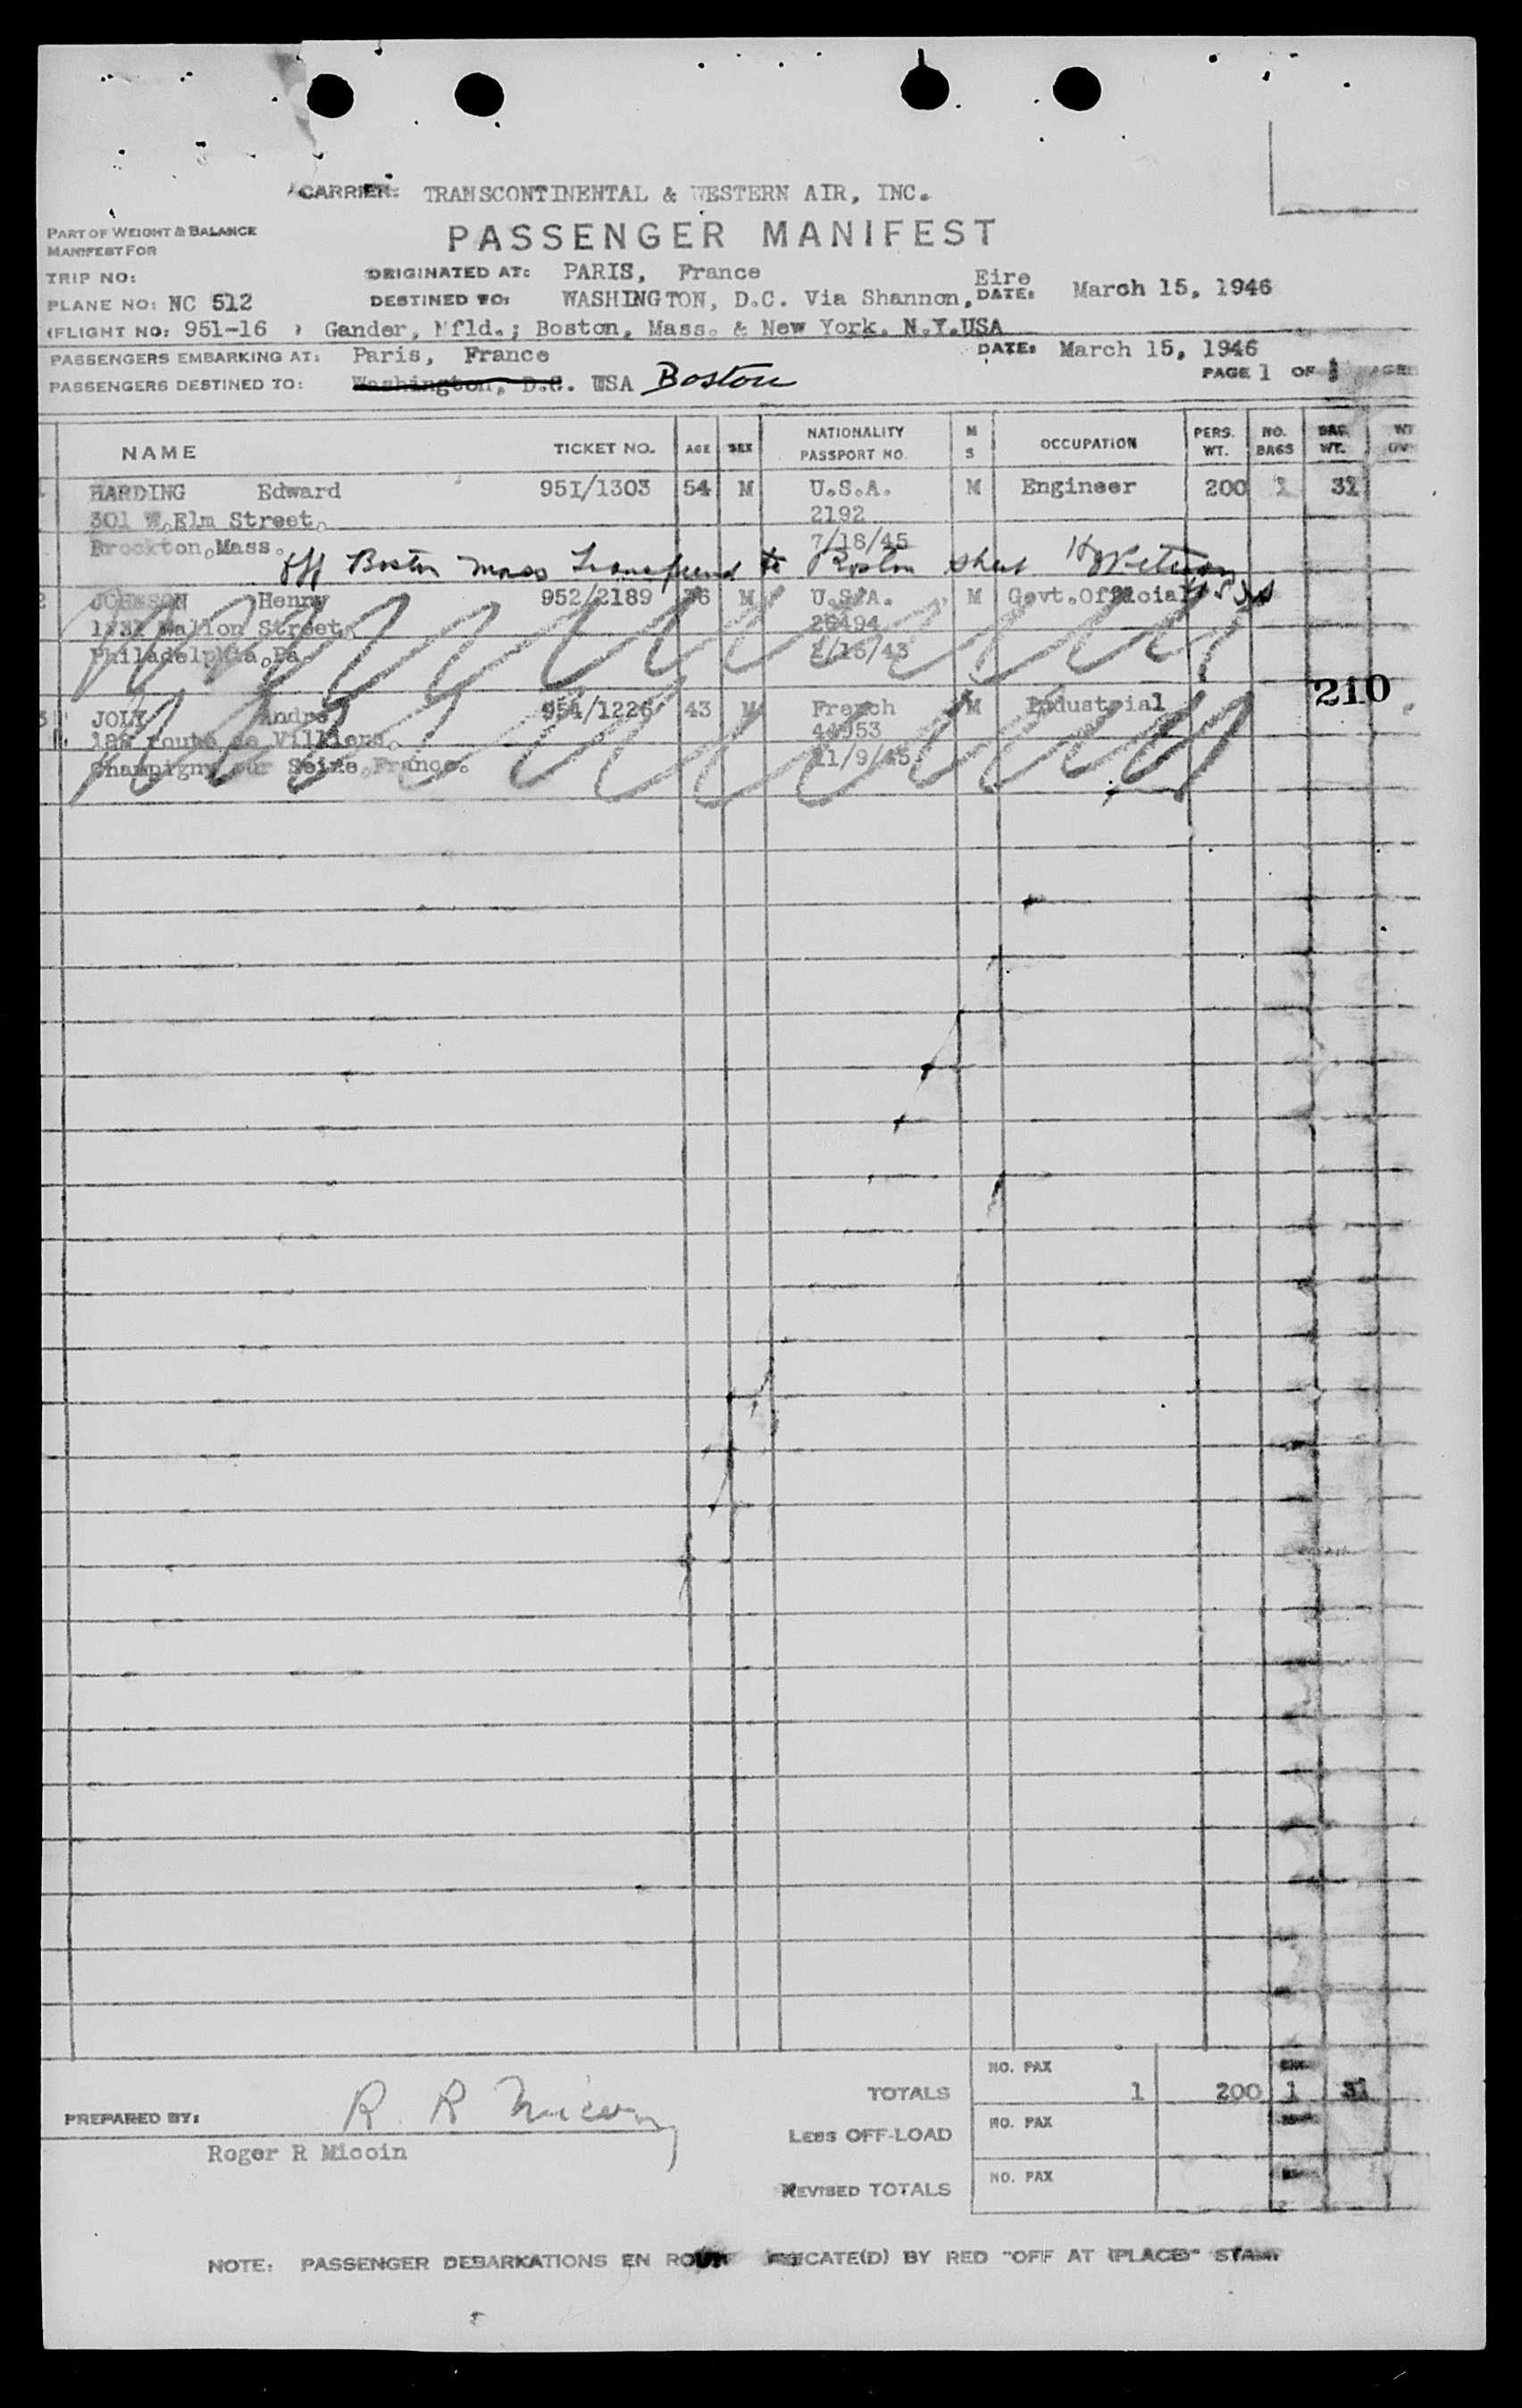 CARRIER: TRANSCONTINENTAL & WESTERN AIR, INC.
PART OF WEIGHT & BALANCE
MANIFEST FOR
PASSENGER MANIFEST
TRIP NO:
ORIGINATED AT: PARIS, France
Eire
PLANE NO: NC 512
DESTINED TO: WASHINGTON, D.C. Via Shannon, DATE: March 15, 1946
(FLIGHT NO: 951-16 ) Gander, Nfld.; Boston, Mass. & New York, N.Y.USA
PASSENGERS EMBARKING AT: Paris, France DATE: March 15, 1946
PASSENGERS DESTINED TO: Washington, D.C. USA Boston PAGE 1 OF
NAME TICKET NO. AGE SEX NATIONALITY PASSPORT NO. M S OCCUPATION PERS. WT. NO. BAGS BAG. WT. WT
HARDING Edward 951/1303 54 M U.S.A. M Engineer 200 1 31
301 W.Elm Street. 2192
Brockton.Mass. 7/18/45
Off Boston Mass Transferred to Boston sheet
2 JOHNSON Henry 952/2189 M U.S.A. M Govt.Official
Street. 26494
Philadelphia.Pa. 2/16/43
210
3 JOLY Andre 954/1226 43 M French M Industrial
route de Villiers. 44953
Champigny sur Seine.France. 11/9/45
TOTALS NO. PAX 1 200 1 31
PREPARED BY: R R Micoin
LESS OFF-LOAD NO. PAX
Roger R Micoin
REVISED TOTALS NO. PAX
NOTE: PASSENGER DEBARKATIONS EN ROUTE INDICATE(D) BY RED "OFF AT (PLACE)" STAMP